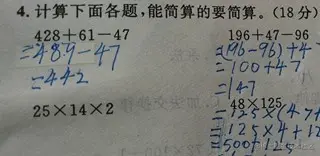 4. 计算下面各题,能简算的要简算。(18分)
428+61-47
=489-47
=442
25×14×2
196+47-96
=(96-96)+47
=100+47
=147
48×125
=125×(4+
=125×4+12
=500+125